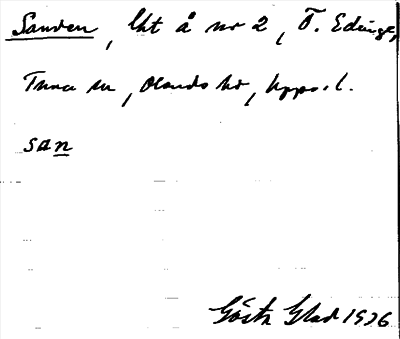 Sanden, lht å nr 2, Ö. Edinge,
Tuna sn, Olands hd, Upps. l.
san
Gösta Glad 1936